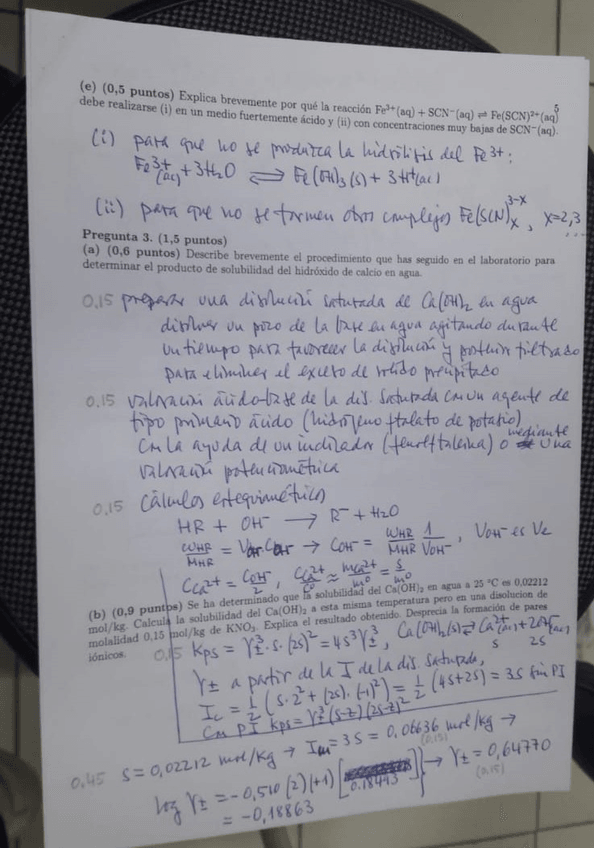 5
(e) (0,5 puntos) Explica brevemente por qué la reacción Fe³⁺(aq) + SCN⁻(aq) ⇌ Fe(SCN)²⁺(aq)
debe realizarse (i) en un medio fuertemente ácido y (ii) con concentraciones muy bajas de SCN⁻(aq).
(i) para que no se produzca la hidrólisis del Fe³⁺:
Fe³⁺(ac) + 3H₂O ⇌ Fe(OH)₃(s) + 3H⁺(ac)
(ii) para que no se formen otros complejos Fe(SCN)ₓ³⁻ˣ, x=2,3 ...
Pregunta 3. (1,5 puntos)
(a) (0,6 puntos) Describe brevemente el procedimiento que has seguido en el laboratorio para
determinar el producto de solubilidad del hidróxido de calcio en agua.
0,15 preparar una disolución saturada de Ca(OH)₂ en agua
disolver un poco de la base en agua agitando durante
un tiempo para favorecer la disolución y posterior filtrado
para eliminar el exceso de sólido precipitado
0,15 valoración ácido-base de la dis. saturada con un agente de
tipo primario ácido (hidrógeno ftalato de potasio)
con la ayuda de un indicador (fenolftaleína) o mediante una
valoración potenciométrica
0,15 Cálculos estequiométricos
HR + OH⁻ → R⁻ + H₂O
wHR/MHR = VOH⁻ COH⁻ → COH⁻ = wHR/MHR 1/VOH⁻, VOH⁻ es Ve
CCa²⁺ = COH⁻/2, CCa²⁺/C⁰ ≈ mCa²⁺/m⁰ = s/m⁰
(b) (0,9 puntos) Se ha determinado que la solubilidad del Ca(OH)₂ en agua a 25 °C es 0,02212
mol/kg. Calcula la solubilidad del Ca(OH)₂ a esta misma temperatura pero en una disolucion de
molalidad 0,15 mol/kg de KNO₃. Explica el resultado obtenido. Desprecia la formación de pares
iónicos.
0,15 Kps = γ±³ · s · (2s)² = 4s³γ±³, Ca(OH)₂(s) ⇌ Ca²⁺(ac) + 2OH⁻(ac)
s 2s
γ± a partir de la I de la dis. saturada,
Ic = 1/2 (s·2² + (2s)·(-1)²) = 1/2 (4s+2s) = 3s sin PI
Con PI Kps = γ±³ (s-z)(2s-z)²
0.45 s = 0,02212 mol/kg → Im = 3s = 0,06636 mol/kg →
(0.15)
log γ± = -0,510 (2)(+1) [0.18493] → γ± = 0,64770
(0.15)
= -0,18863